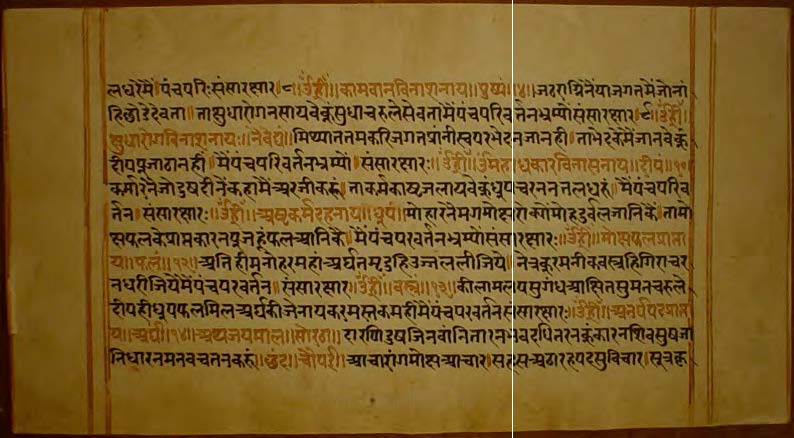 लधरेमें॥ पंचपरि॰संसारसार॰ ॥उँह्रीं॥ कामवानविनाशनाय॥ पुष्पं॥४॥ जठराग्निनेंयाजगतमेंजोनां
हिछोडेदेवता॥ ताक्षुधारोगनसायवेकूंसुधाचरुलेसेवता॥ मेंपंचपरिवर्तनभ्रम्यौंसंसारसार॥ उँह्रीं॥
क्षुधारोगविनाशनायः॥ नैवेद्यं॥ मिथ्याततमकरिजगतप्रानीस्वपरभेदनजानही॥ ताभेदकेमेंजानवेकूं
दीपपूजाठानही॥ मेंपंचपरिवर्तनभ्रम्यौं॥ संसारसारः॥ उँह्रीं॥ मोहांधकारविनासनाय॥ दीपं॥१०
कर्मारनेजोदुषदीनेंकहामेंअरजीकरूं॥ ताकर्मकाष्टजलायवेकूंधूपचरननतलधरूं॥ मेंपंचपरिव
र्तन॥ संसारसारः॥ उँह्रीं॥ अष्टकर्मदहनाय॥ धूपं॥ मोहारनेमगमोक्षरोक्योंमोहदुर्वलजानिकें॥ तामो
क्षफलकेप्राप्तकारनपूजहूंफलआनिकें॥ मेंपंचपरवर्तनभ्रम्यौंसंसारसारः॥ उँह्रीं॥ मोक्षफलप्राप्ता
य॥ फलं॥१२॥ अतिहीमनोहरमहाअर्घतमृदुहिउज्जललीजिये॥ नेत्रकूंरमनीकवस्त्रहिगिराचर
नधरीजियेमेंपंचपरवर्तन॥ संसारसार॥ उँह्रीं॥ वस्त्रं॥१३॥ कीलामलयसुगंधआक्षितसुमनचरुले
दीपहीधूपफलमिलअर्घकीजेनायकरमस्तकमहीमेंपंचपरवर्तनसंसारसारः॥ उँह्रीं॥ अनर्घपदप्राप्ता
य॥ अर्घं॥१४॥ अथजयमाल॥ सोरठा॥ दारणिदुषजिनवांनितारनभवदधितरनकूंकारनशिवसुषजा
निधारनमनवचतनकरूं॥ छंद॥ चौपई॥ आचारांगमोक्षआचार॥ सहसअठारहपदसुविचार॥ सूत्रकृ